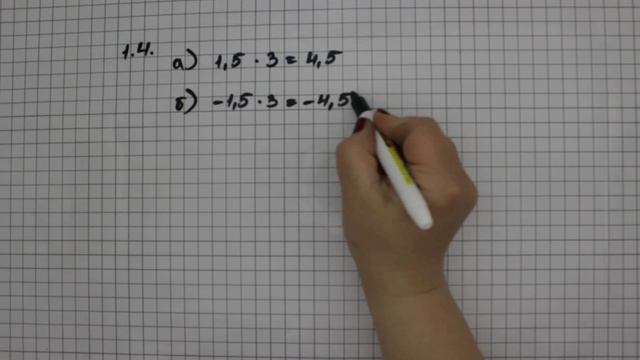 1.4. а) 1,5 · 3 = 4,5
б) -1,5 · 3 = -4,5